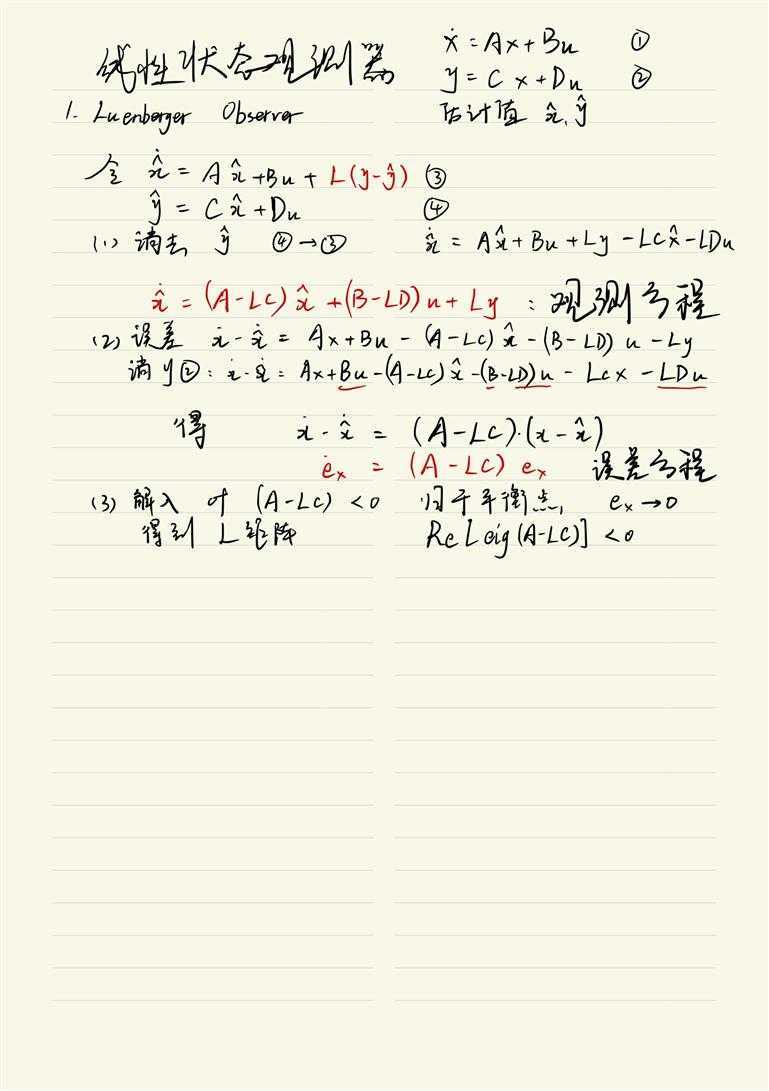 线性状态观测器
ẋ = Ax + Bu ①
y = Cx + Du ②
估计值 x̂, ŷ
1. Luenberger Observer
令 x̂̇ = Ax̂ + Bu + L(y-ŷ) ③
ŷ = Cx̂ + Du ④
(1) 消去 ŷ ④→③ x̂̇ = Ax̂ + Bu + Ly - LCx̂ - LDu
x̂̇ = (A-LC)x̂ + (B-LD)u + Ly : 观测方程
(2) 误差 ẋ - x̂̇ = Ax + Bu - (A-LC)x̂ - (B-LD)u - Ly
消y②: ẋ - x̂̇ = Ax + Bu - (A-LC)x̂ - (B-LD)u - LCx - LDu
得 ẋ - x̂̇ = (A-LC)·(x-x̂)
ėx = (A-LC) ex 误差方程
(3) (A-LC) <0 归于平衡点, ex→0
得到 L矩阵 Re[eig(A-LC)] <0